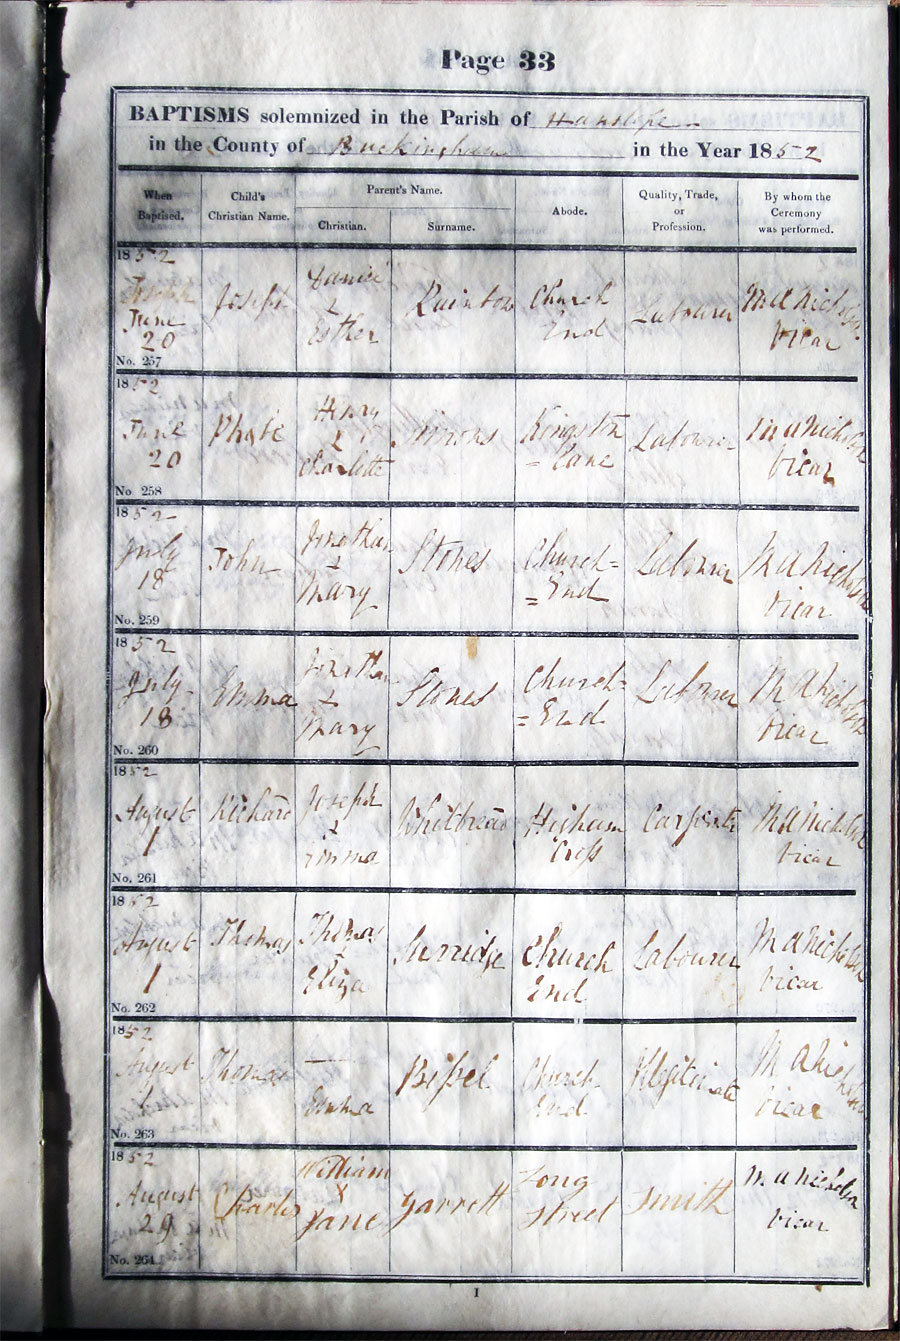 Page 33
BAPTISMS solemnized in the Parish of Hanslope
in the County of Buckingham in the Year 1852
When Baptised.
Child's Christian Name.
Parent's Name.
Christian.
Surname.
Abode.
Quality, Trade, or Profession.
By whom the Ceremony was performed.
1852
June
20
No. 257
Joseph
Daniel
&
Esther
Church
End
Labourer
Vicar
1852
June
20
No 258
Phœbe
Henry
&
Charlotte
Simons
Kingston
= Lane
Labourer
Vicar
1852
July
18
No. 259
John
Jonathan
&
Mary
Stones
Church=
= End
Labourer
M A Nicholson
Vicar
1852
July
18
No. 260
Emma
Jonathan
&
Mary
Stones
Church=
= End
Labourer
M A Nicholson
Vicar
1852
August
1
No. 261
Richard
Joseph
&
Emma
Whitbread
Higham
Cross
Carpenter
M A Nicholson
Vicar
1852
August
1
No. 262
Thomas
Thomas
&
Eliza
Surridge
Church
End
Labourer
M A Nicholson
Vicar
1852
August
1
No. 263
Thomas
—
Emma
Bißel
Church
End
Illegitimate
M A Nicholson
Vicar
1852
August
29
No. 264
Charles
William
&
Jane
Garrett
Long
Street
Smith
M A Nicholson
Vicar
I